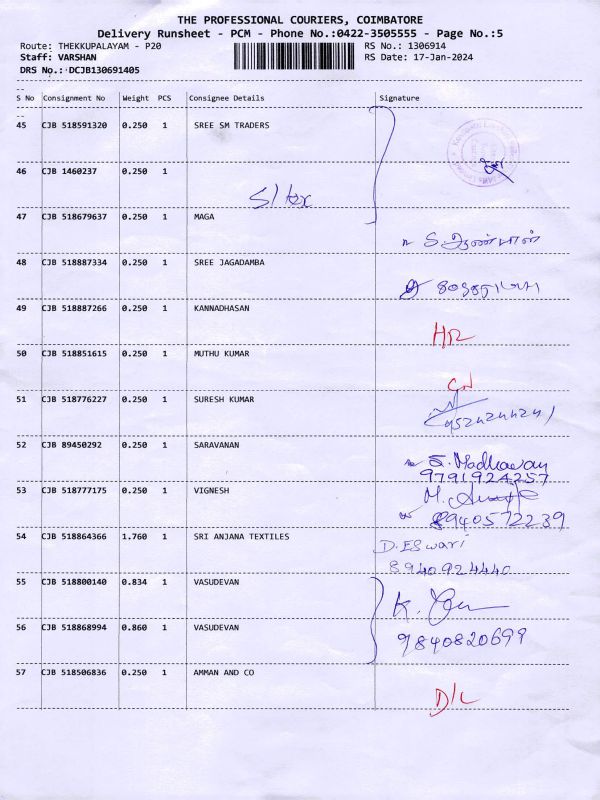 THE PROFESSIONAL COURIERS, COIMBATORE
Delivery Runsheet - PCM - Phone No.:0422-3505555 - Page No.:5
Route: THEKKUPALAYAM - P20 RS No.: 1306914
Staff: VARSHAN RS Date: 17-Jan-2024
DRS No.: DCJB130691405
S No Consignment No Weight PCS Consignee Details Signature
45 CJB 518591320 0.250 1 SREE SM TRADERS
46 CJB 1460237 0.250 1
47 CJB 518679637 0.250 1 MAGA
48 CJB 518887334 0.250 1 SREE JAGADAMBA
49 CJB 518887266 0.250 1 KANNADHASAN
HR
50 CJB 518851615 0.250 1 MUTHU KUMAR
CN
51 CJB 518776227 0.250 1 SURESH KUMAR
52 CJB 89450292 0.250 1 SARAVANAN
S. Madhavan
9791924257
53 CJB 518777175 0.250 1 VIGNESH
8940572239
54 CJB 518864366 1.760 1 SRI ANJANA TEXTILES
D. ESwari
8940924440
55 CJB 518800140 0.834 1 VASUDEVAN
56 CJB 518868994 0.860 1 VASUDEVAN
9840820699
57 CJB 518506836 0.250 1 AMMAN AND CO
D/L